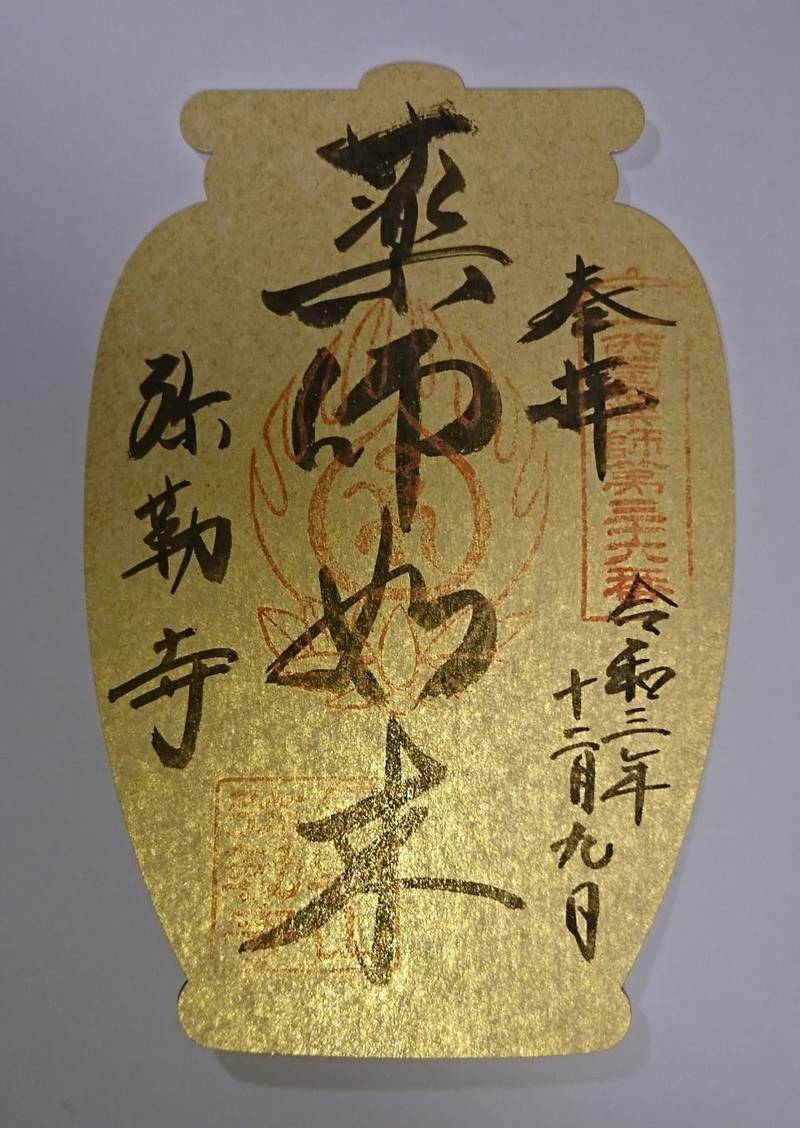 奉拝
西国薬師第三十六番
令和三年
十二月九日
薬師如来
弥勒寺